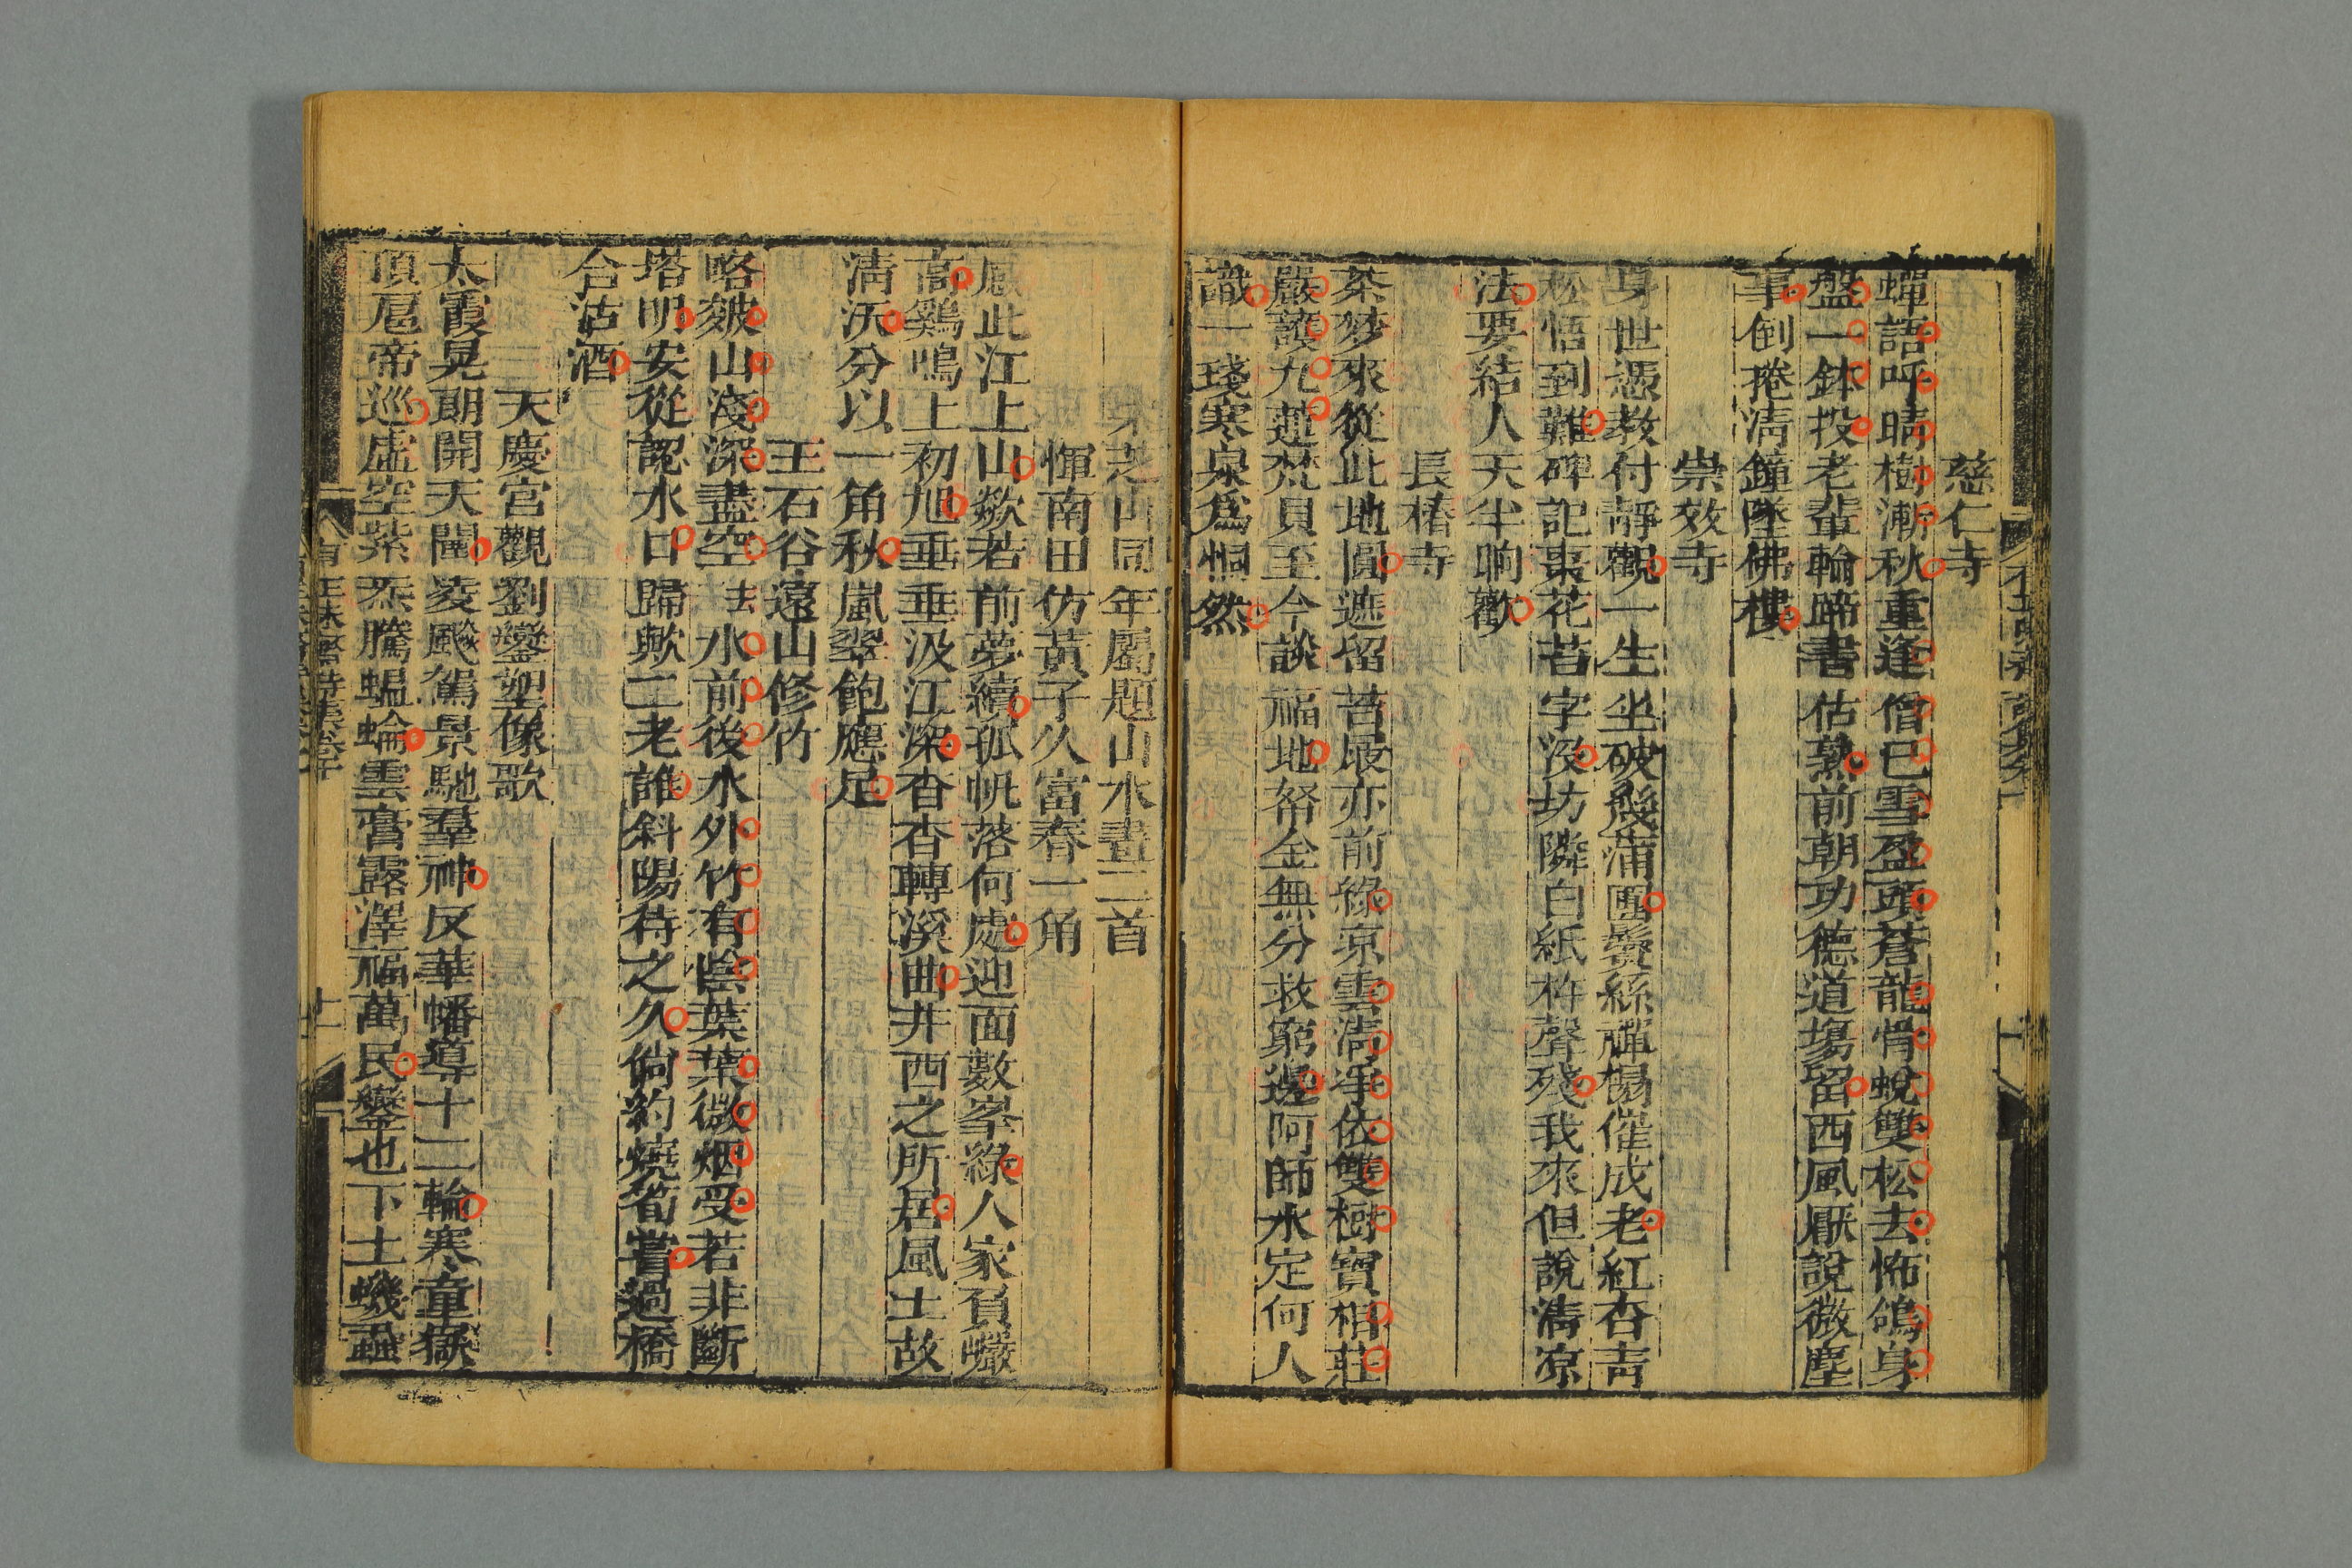 慈仁寺
蟬語呼晴樹漸秋重逢僧已雪盈頭蒼龍骨蛻雙松去怖鴿身
盤一鉢投老輩輪蹄書估熟前朝功德道場留西風厭說微塵
事倒捲清鐘墜佛樓
崇效寺
身世憑教付靜觀一生坐破幾蒲團鬢絲禪榻催成老紅杏青
松悟到難碑記棗花苔字沒坊隣白紙杵聲殘我來但說清涼
法要結人天半晌歡
長椿寺
茶夢來從此地圓遮留苔屐亦前緣凉雲淸淨依雙樹寶相莊
嚴護九蓮梵貝至今談福地帑金無分救窮邊阿師水定何人
識一琖寒泉爲惘然
芝山同年屬題山水畫二首
惲南田仿黃子久富春一角
此江上山歘若前夢續孤帆落何處迎面數峯綠人家負巘
高鷄鳴上初旭垂垂汲江深杳杳轉溪曲井西之所居風土故
淸沃分以一角秋嵐翠飽應足
王石谷遠山修竹
略皴山淺深盡空法水前後水外竹有陰葉葉微烟受若非斷
塔明安從認水口歸歟二老誰斜陽待之久倘約燒筍嘗過橋
合沽酒
天慶宮觀劉鑾塑像歌
太霞晃朗開天閶凌飈駕景馳羣神反華幡導十二輪寒童嶽
頂扈帝巡虛空紫炁騰蜿蜦雲膏露澤福萬民鑾也下士蟣蝨